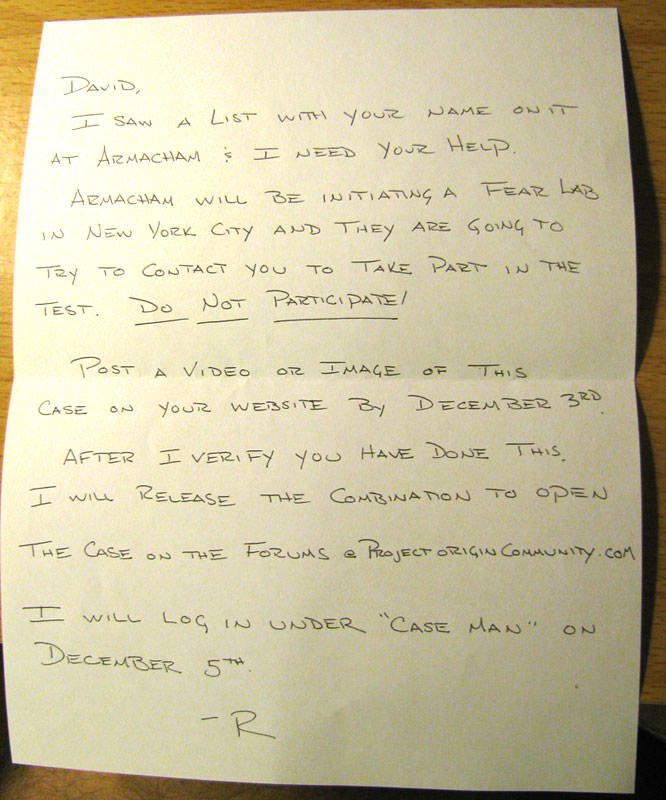 DAVID,
I SAW A LIST WITH YOUR NAME ON IT
AT ARMACHAM & I NEED YOUR HELP.
ARMACHAM WILL BE INITIATING A FEAR LAB
IN NEW YORK CITY AND THEY ARE GOING TO
TRY TO CONTACT YOU TO TAKE PART IN THE
TEST. DO NOT PARTICIPATE!
POST A VIDEO OR IMAGE OF THIS
CASE ON YOUR WEBSITE BY DECEMBER 3RD.
AFTER I VERIFY YOU HAVE DONE THIS.
I WILL RELEASE THE COMBINATION TO OPEN
THE CASE ON THE FORUMS @ PROJECTORIGINCOMMUNITY.COM
I WILL LOG IN UNDER "CASE MAN" ON
DECEMBER 5TH.
- R